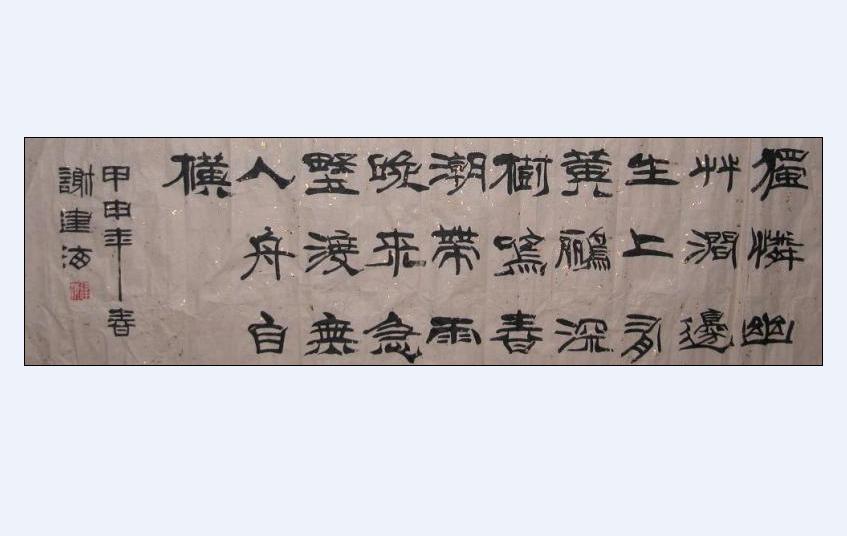 獨憐幽
艸澗邊
生上有
黄鸝深
樹鳴春
潮帶雨
晚来急
墅渡無
人舟自
横
甲申年春
謝建海